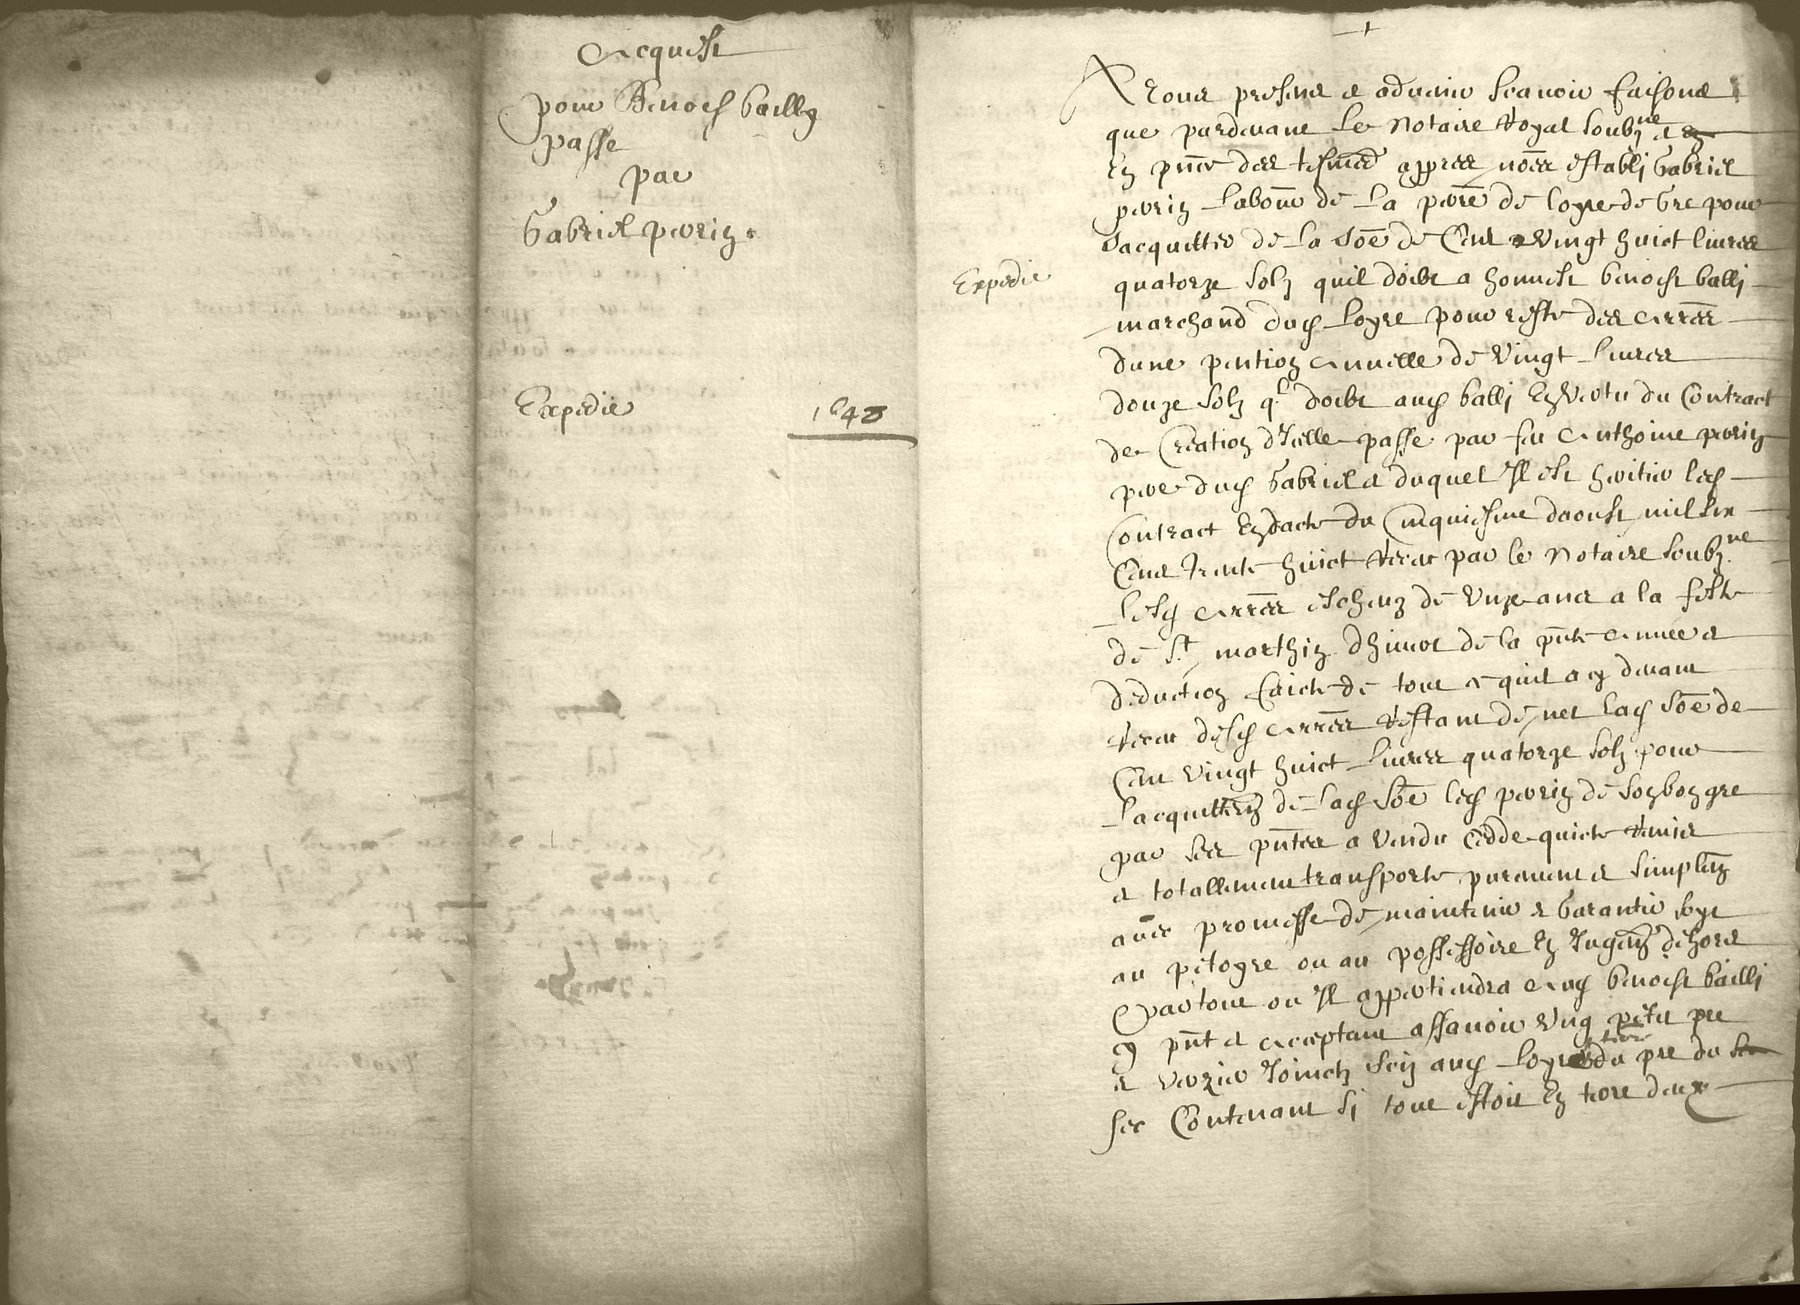 Acquest
pour Benoist bailly
passe
par
Gabriel perrin.
Expedie
1648
A tous presens et advenir scavoir faisons
que pardevant le notaire Royal soubzne et
En pnce des tesmes appres nomes establi Gabriel
perrin labour de la perre de loyre de gre pour
sacquitter de la some de Cent vingt huict livres
Expedie
quatorze solz quil doibt a honneste benoist balli
marchand dud loyre pour reste des arres
dune pention annuelle de vingt livres
douze solz ql doibt aud balli En vertu du Contract
de Creation dicelle passe par feu Anthoine perrin
pere dud Gabriel et duquel Il est heritier led
Contract En dacte du Cinquiesme daoust mil six
Cens trente huict Receu par le notaire soubzne
lesd arres escheuz de unze ans a la feste
de St marthin dhiver de la pnte annee et
deduction faicte de tout ce quil a cy devant
Receu desd arres Restant de net lad some de
Cent vingt huict livres quatorze solz pour
lacquittemt de lad some led perrin de son bon gre
par ses pntes a vendu Cedde quicte Remis
et totallement transporte purement et simplemt
avec promesse de maintenir et Garantir soyt
au petoyre ou au possessoire En Jugemt dehors
Et partout ou Il appertiendra aud benoist bailli
cy pnt et acceptant assavoir Ung petit pre
et verzier Joinctz scis aud loyre du pre du
sec Contenant si tout estoit En terre deux